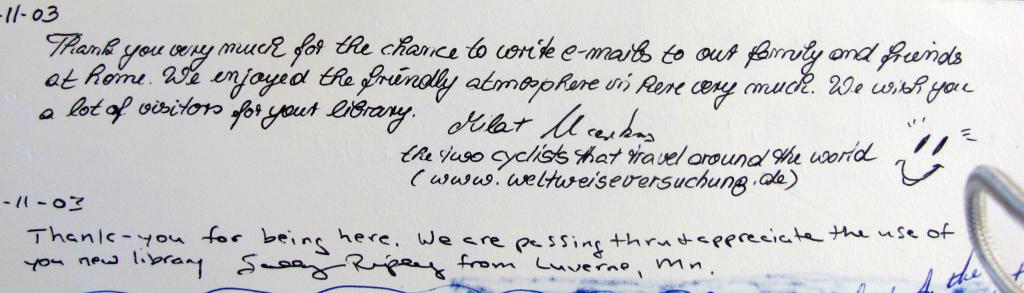 -11-03
Thank you very much for the chance to write e-mails to our family and friends
at home. We enjoyed the friendly atmosphere in here very much. We wish you
a lot of visitors for your library.
the two cyclists that travel around the world
(www.weltweiseversuchung.de)
-11-03
Thank-you for being here. We are passing thru + appreciate the use of
you new library Sally Ripley from Luverne, Mn.
the